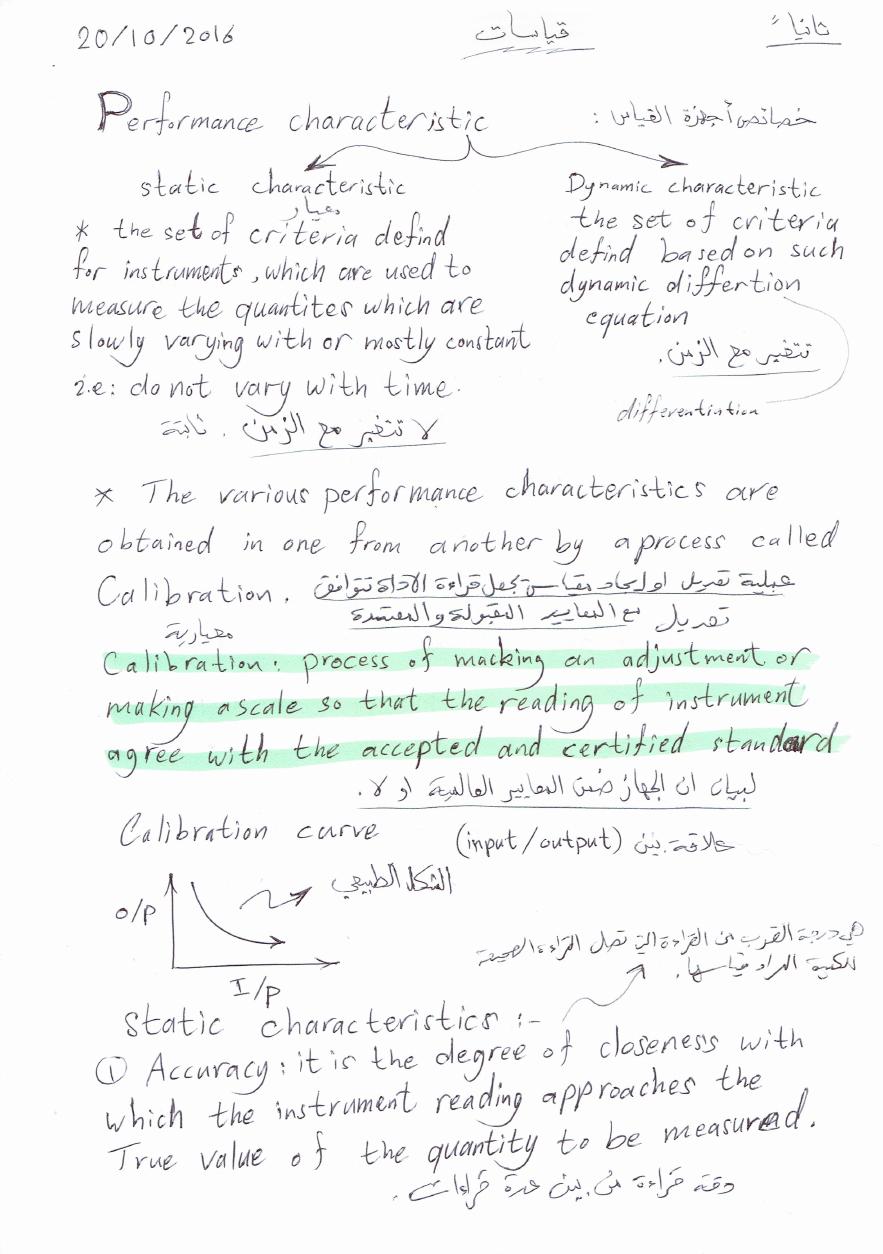 20/10/2016 قياسات ثانياً
Performance characteristic خصائص أجهزة القياس :
static characteristic
معيار
* the set of criteria defind
for instruments, which are used to
measure the quantites which are
slowly varying with or mostly constant
i.e: do not vary with time.
لا تتغير مع الزمن . ثابتة
Dynamic characteristic
the set of criteria
defind based on such
dynamic differtion
equation
تتغير مع الزمن.
differentintion
* The various performance characteristics are
obtained in one from another by a process called
Calibration. عملية تعديل او ايجاد مقياس تجعل قراءة الاداة تتوافق
تعديل مع المعايير المقبولة والمعتمدة
معيارية
Calibration: process of macking an adjustment or
making a scale so that the reading of instrument
agree with the accepted and certified standard
لبيان ان الجهاز ضمن المعايير العالمية او لا.
Calibration curve (input/output) علاقة بين
الشكل الطبيعي
O/P
I/P
هي درجة القرب من القراءة التي تصل القراءة الصحيحة
للكمية المراد قياسها.
Static characteristics :-
① Accuracy: it is the degree of closeness with
which the instrument reading approaches the
True value of the quantity to be measured.
دقة قراءة من بين عدة قراءات.